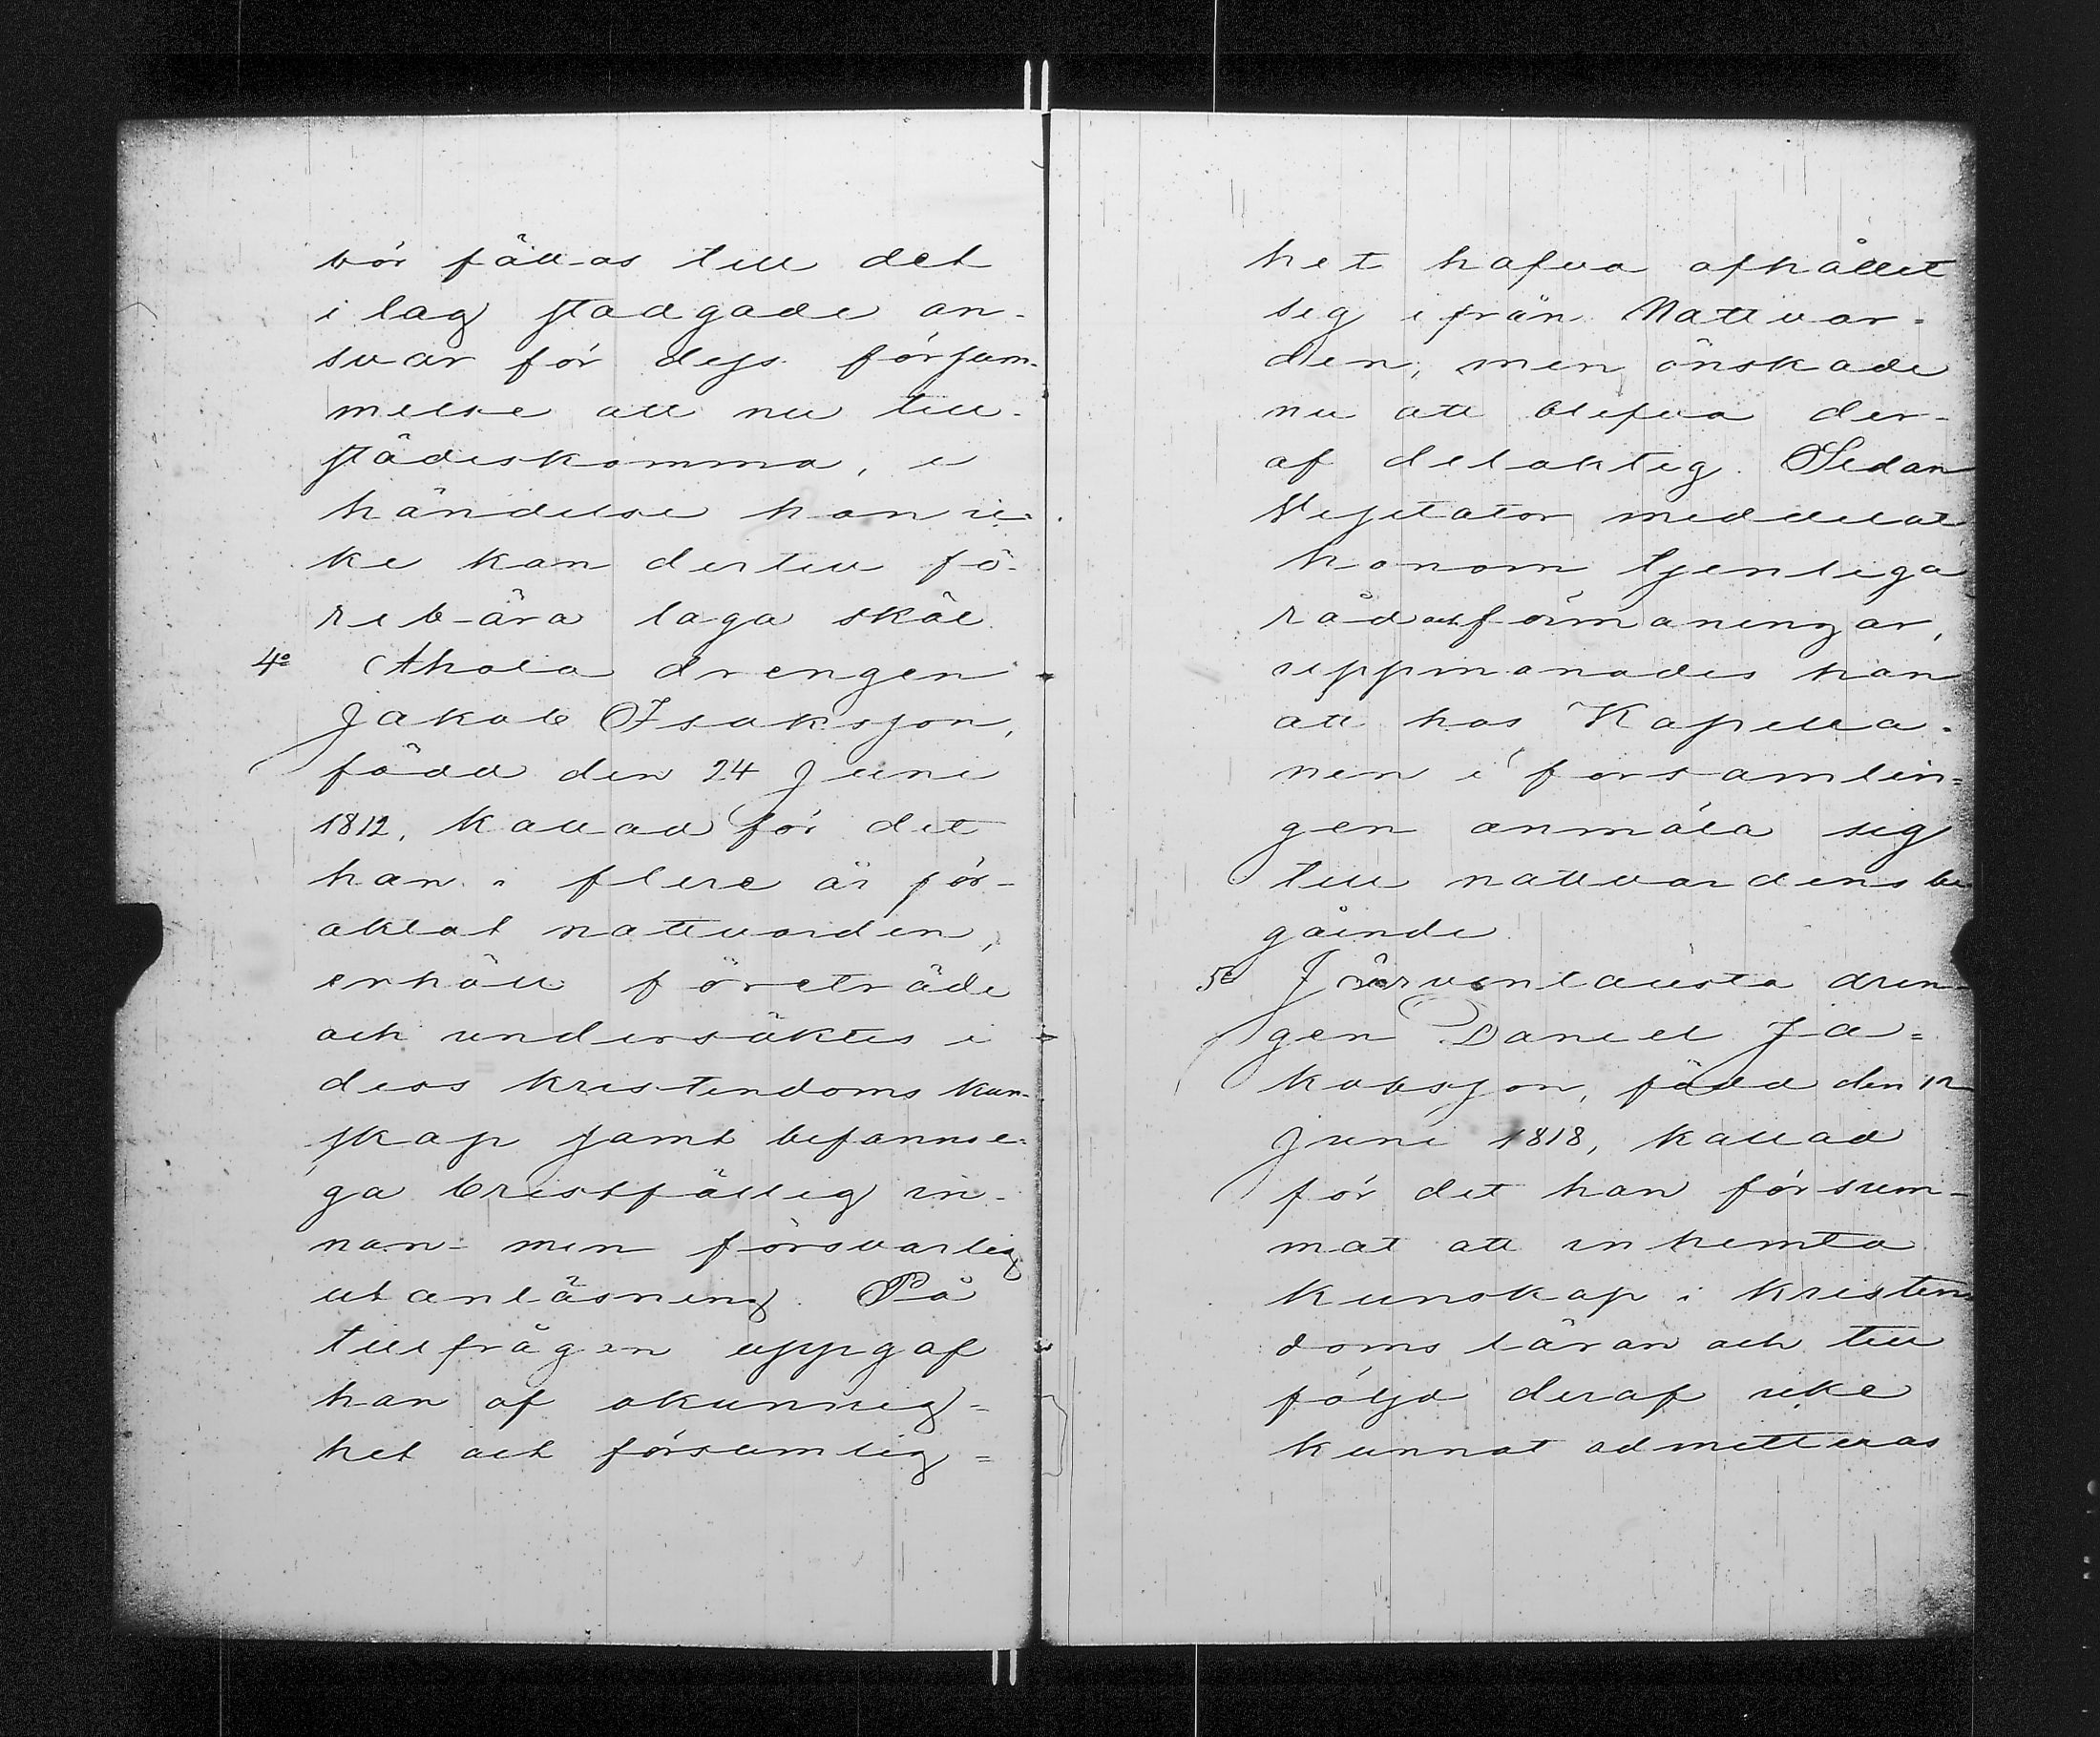 bör fällas till det
i lag stadgade an-
svar för dess försum-
melse att nu till-
städeskomma, i
händelse han ic-
ke kan dertill fö-
rebära laga skäl.
4o Ahola drengen
Jakob Isaksson,
född den 24 Juni
1812, kallad för det
han i flere år för-
aktat nattvarden,
erhöll företräde
och undersöktes i
dess kristendoms kun-
skap samt befanns e-
ga bristfällig in-
nan- men försvarlig
utanläsning. På
tillfrågan uppgaf
han af okunnig=
het och försumlig=
het hafva afhållit
sig ifrån Nattvar=
den, men önskade
nu att blifva der-
af delaktig. Sedan
Visitator meddelat
honom tjenliga
råd och förmaningar,
uppmanades han
att hos Kapella-
nen i församlin=
gen anmäla sig
till nattvardens be-
gående.
5o Järvenlausta dren-
gen Daniel Ja=
kobsson, född den 12
Juni 1818, kallad
för det han försum-
mat att inhemta
kunskap i kristen-
doms läran och till
följd deraf icke
kunnat admitteras